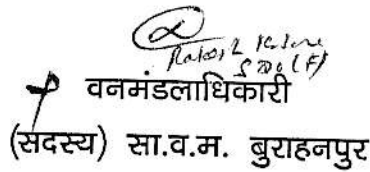 SDO (F)
वनमंडलाधिकारी
(सदस्य) सा.व.म. बुराहनपुर